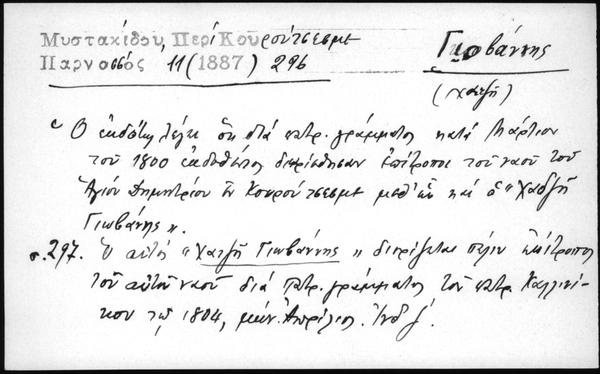 Μυστακίδου, Περὶ Κουρούτσεσμε
Παρνασσός 11 (1887) 296
Γιοβάννης
(Χατζῆ)
Ὁ ἐκδότης λέγει ὅτι διὰ πατρ. γράμματος κατὰ Μάρτιον
τοῦ 1800 ἐκδοθέντος διωρίσθησαν ἐπίτροποι τοῦ ναοῦ τοῦ
Ἁγίου Δημητρίου ἐν Κουρούτσεσμε μεθ' ὧν καὶ ὁ "Χαδζῆ
Γιωβάνης".
σ. 297. Ὁ αὐτὸς "Χατζῆ Γιωβάννης" διορίζεται πάλιν ἐπίτροπος
τοῦ αὐτοῦ ναοῦ διὰ πατρ. γράμματος τοῦ πατρ. Καλλινί-
κου τῷ 1804, μην. Ἀπρίλιος. Ἰνδ ζ'.